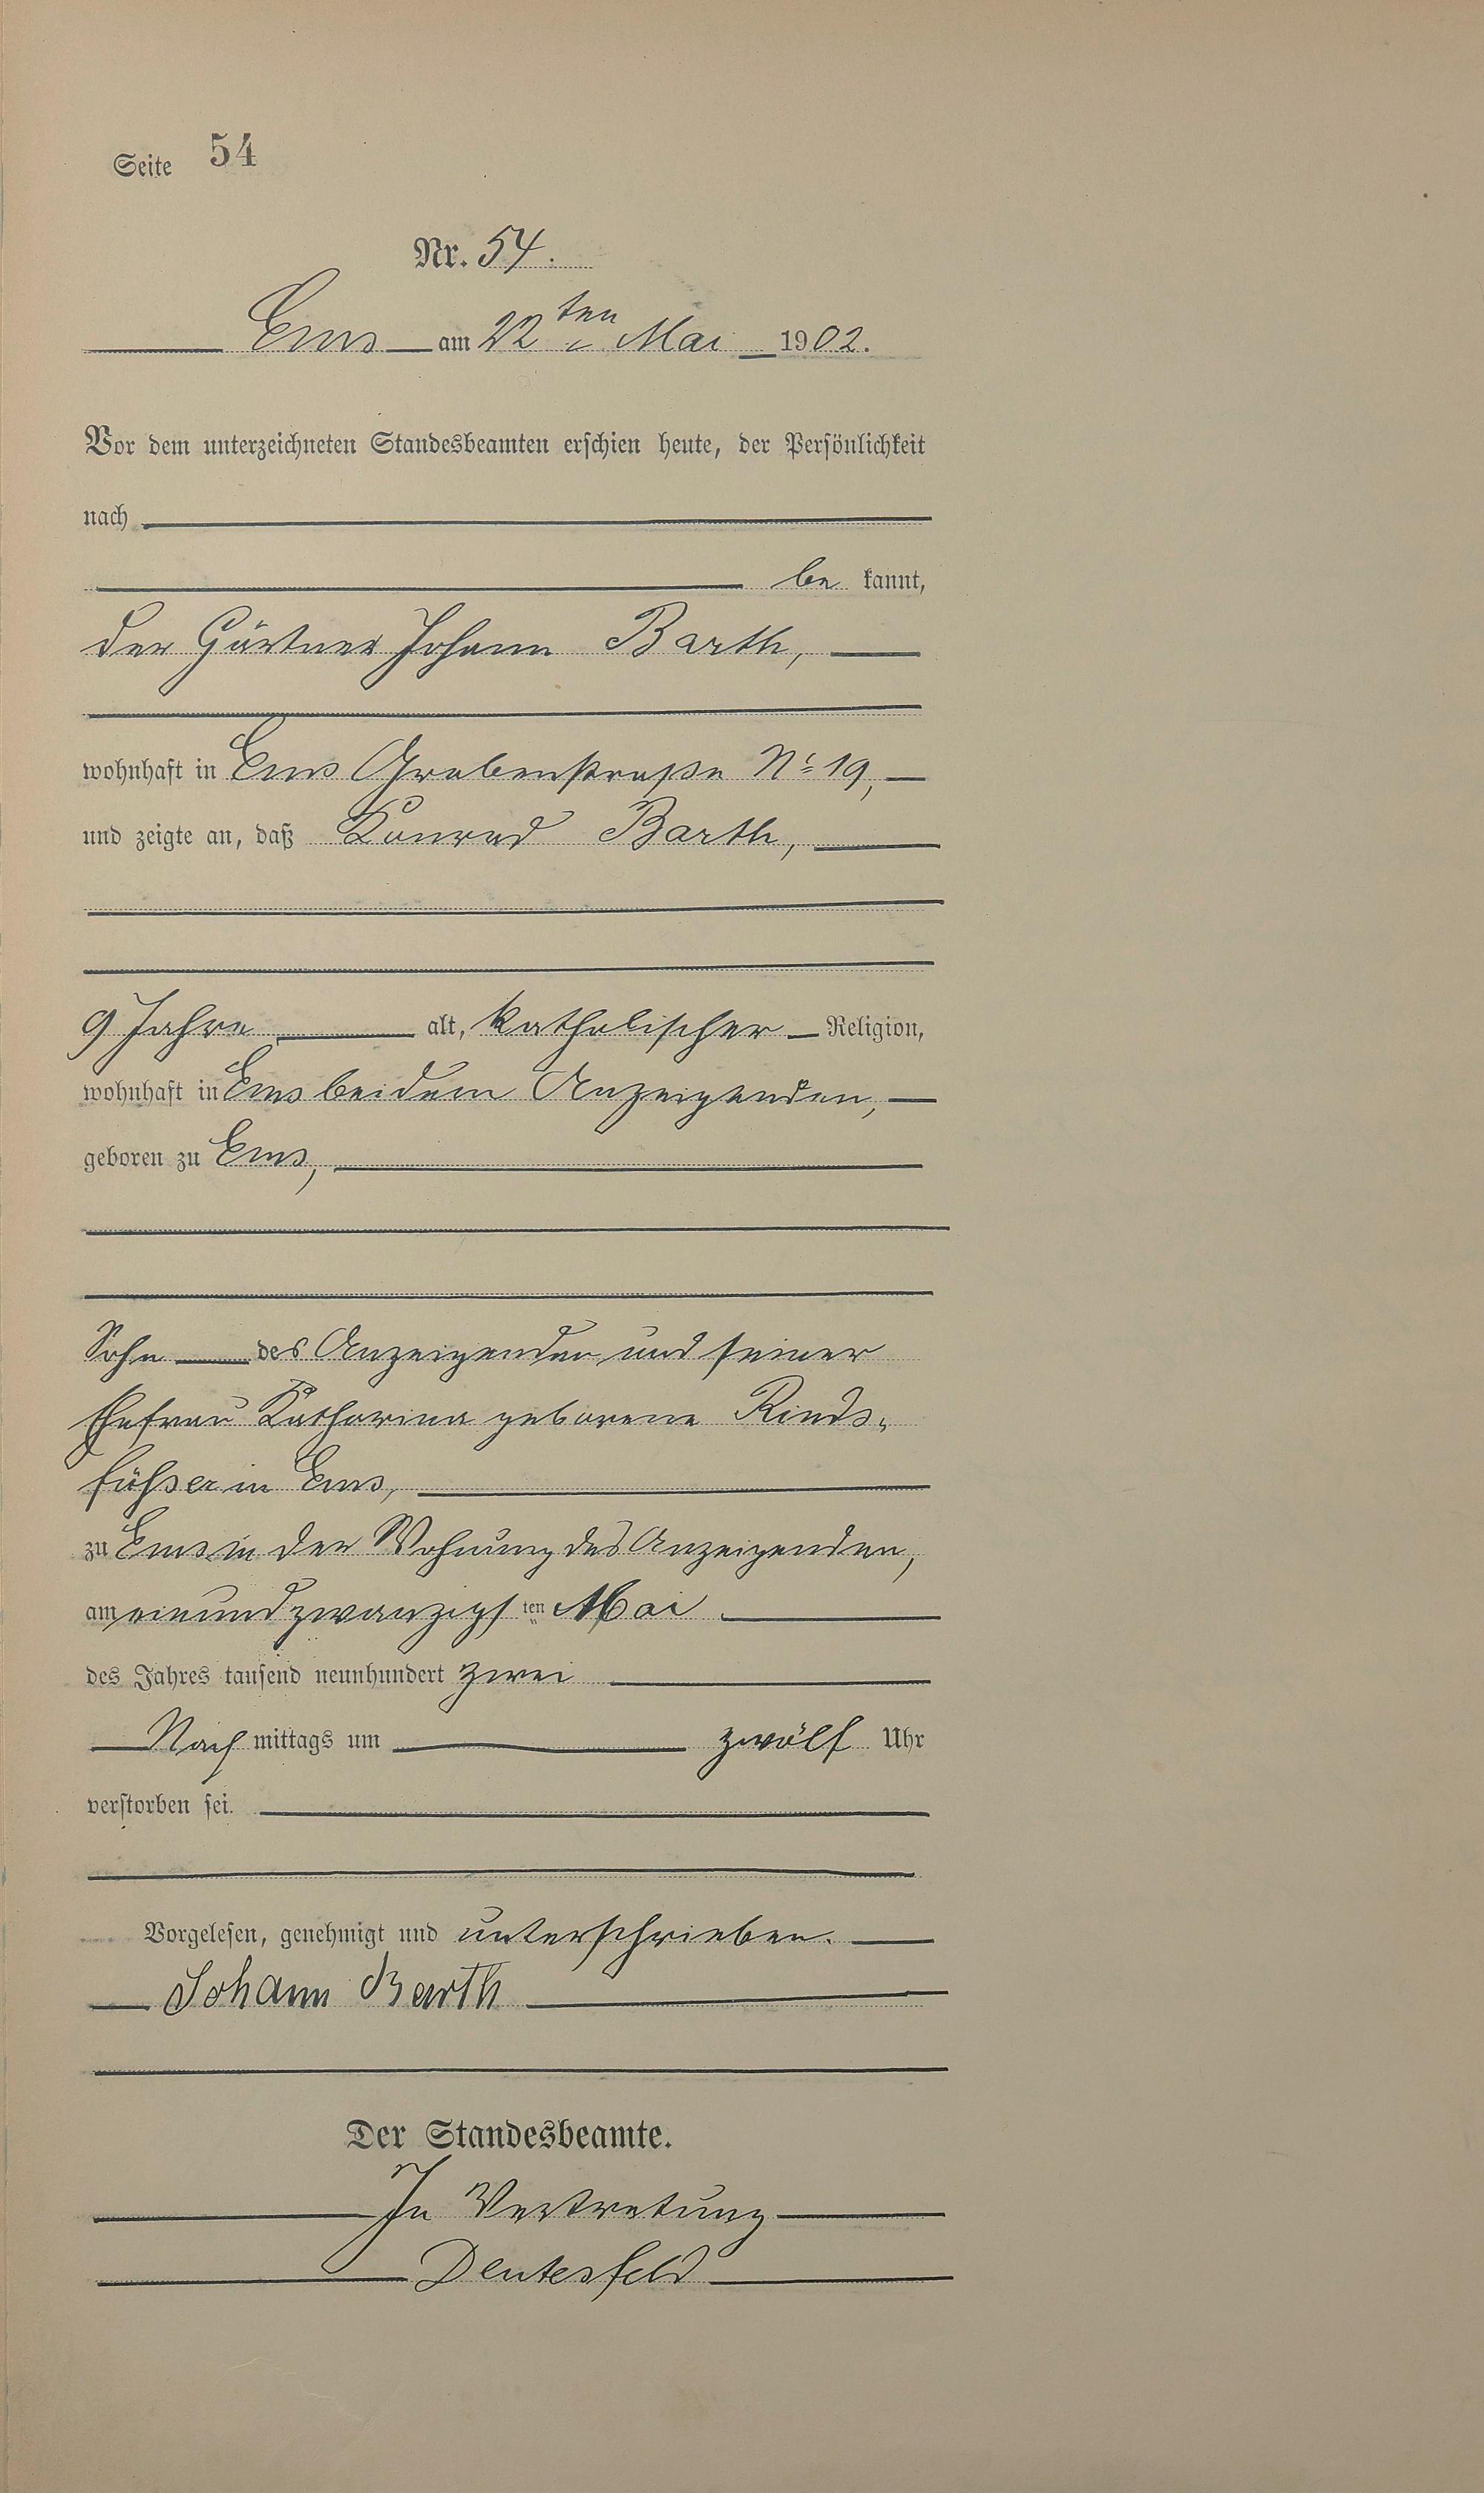 Seite 54
Nr. 54.
Ems am 22ten Mai 1902.
Vor dem unterzeichneten Standesbeamten erschien heute, der Persönlichkeit
nach
be kannt,
der Gärtner Johann Barth,
wohnhaft in Ems Grabenstraße No 19,
und zeigte an, daß Konrad Barth,
9 Jahre alt, katholischer Religion,
wohnhaft in Ems bei dem Anzeigenden,
geboren zu Ems,
Sohn des Anzeigenden und seiner
Ehefrau Katharina geborene Rinds-
füßer in Ems,
zu Ems in der Wohnung des Anzeigenden,
am einundzwanzigs ten Mai
des Jahres tausend neunhundert zwei
Nach mittags um zwölf Uhr
verstorben sei.
Vorgelesen, genehmigt und unterschrieben.
Johann Barth
Der Standesbeamte.
In Vertretung
Deutesfeld